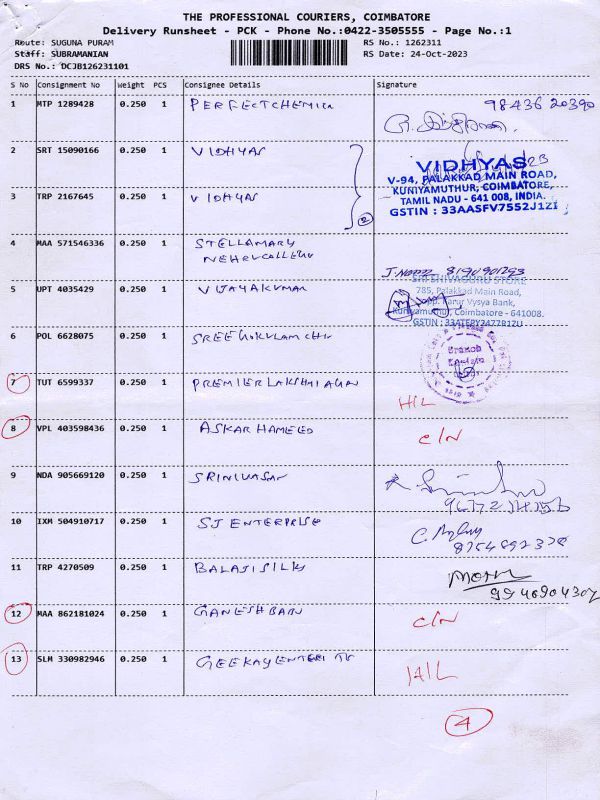 THE PROFESSIONAL COURIERS, COIMBATORE
Delivery Runsheet - PCK - Phone No.:0422-3505555 - Page No.:1
Route: SUGUNA PURAM RS No.: 1262311
Staff: SUBRAMANIAN RS Date: 24-Oct-2023
DRS No.: DCJB126231101
S No Consignment No Weight PCS Consignee Details Signature
1 MTP 1289428 0.250 1 98436 20390
2 SRT 15090166 0.250 1 VIDHYAS
VIDHYAS
V-94, PALAKKAD MAIN ROAD,
KUNIYAMUTHUR, COIMBATORE,
TAMIL NADU - 641 008, INDIA.
GSTIN : 33AASFV7552J1ZI
3 TRP 2167645 0.250 1 VIDHYAS
2
4 MAA 571546336 0.250 1 STELLAMARY
NEHRU COLLEGE
8190901293
5 UPT 4035429 0.250 1 VIJAYAKUMAR
SRI SHIVAGURU STORE
785, Palakkad Main Road,
Opp. Karur Vysya Bank,
Kuniyamuthur, Coimbatore - 641008.
6 POL 6628075 0.250 1
Branch
7 TUT 6599337 0.250 1 PREMIER LAKSHMI AGAN
H/L
8 VPL 403598436 0.250 1 ASKAR HAMEED
C/N
9 NDA 905669120 0.250 1 SRINIVASAN
10 IXM 504910717 0.250 1 SJ ENTERPRISE
11 TRP 4270509 0.250 1 BALAJI SILKS
12 MAA 862181024 0.250 1 GANESH BABU
C/N
13 SLM 330982946 0.250 1
H/L
4